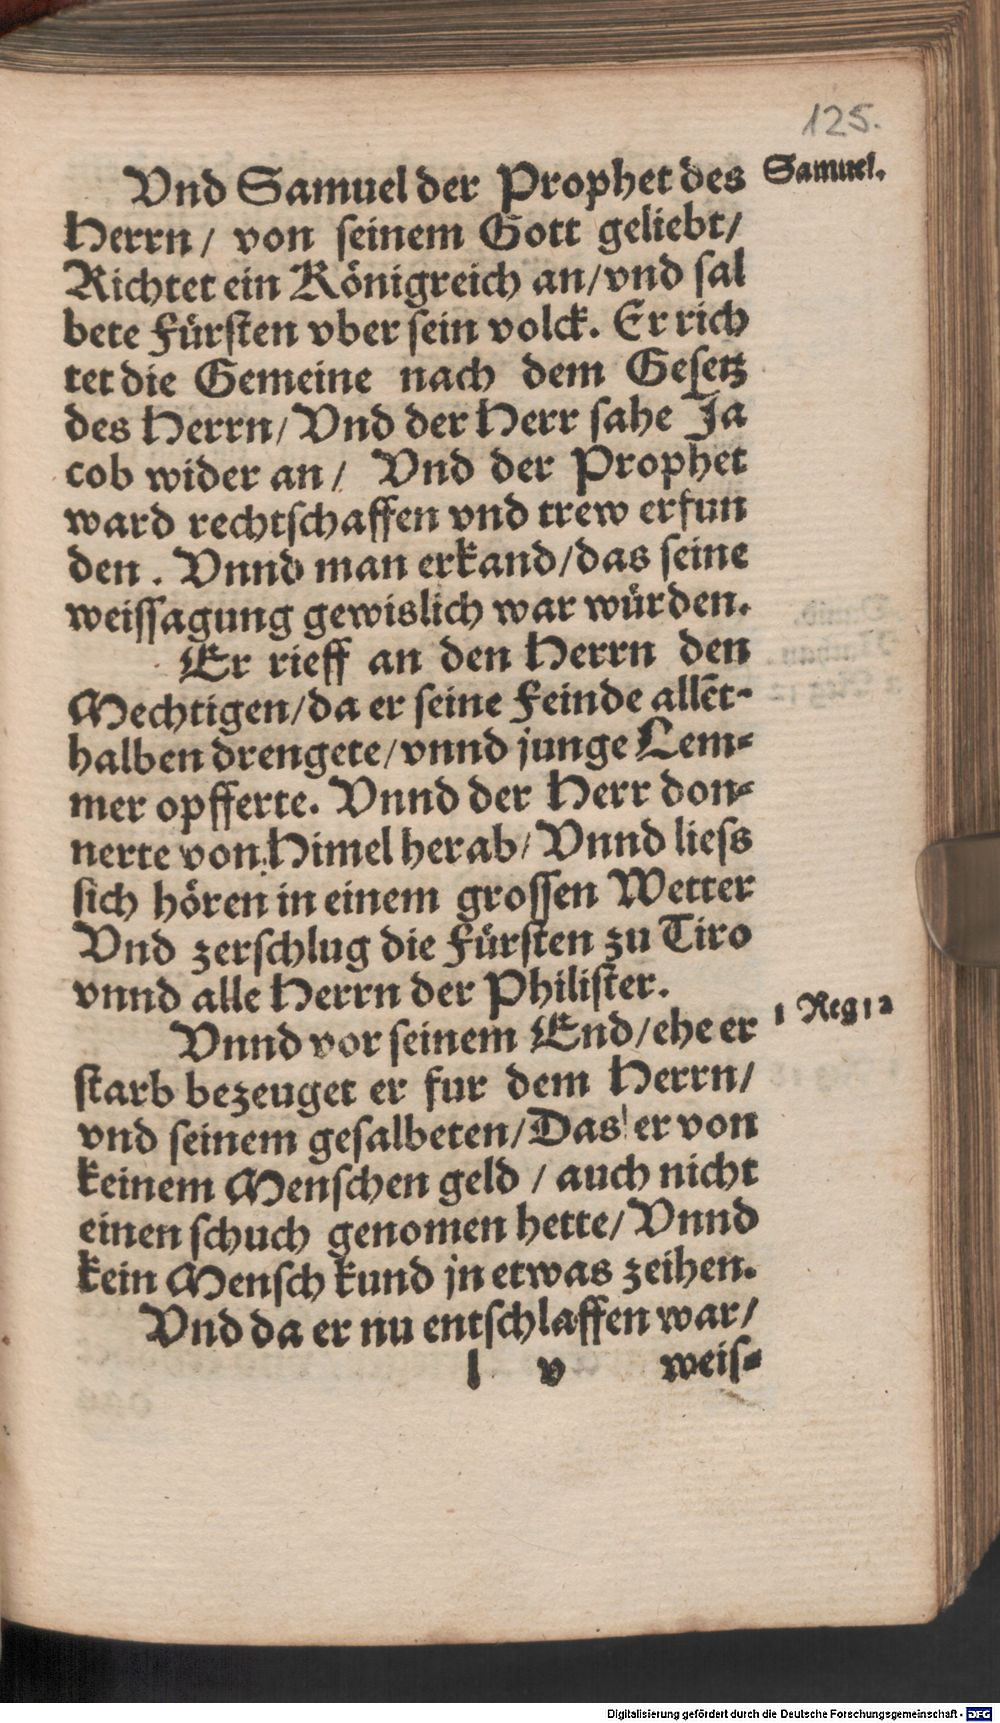 125.
Vnd Samuel der Prophet des
Samuel.
Herrn / von seinem Gott geliebt /
Richtet ein Königreich an / vnd sal
bete Fürsten vber sein volck. Er rich
tet die Gemeine nach dem Gesetz
des Herrn / Vnd der Herr sahe Ja
cob wider an / Vnd der Prophet
ward rechtschaffen vnd trew erfun
den . Vnnd man erkand / das seine
weissagung gewislich war würden.
Er rieff an den Herrn den
Mechtigen / da er seine Feinde allēt-
halben drengete / vnnd junge Lem-
mer opfferte. Vnnd der Herr don-
nerte von Himel herab / Vnnd liess
sich hören in einem grossen Wetter
Vnd zerschlug die Fürsten zu Tiro
vnnd alle Herrn der Philister.
Vnnd vor seinem End / ehe er
1 Reg 12
starb bezeuget er fur dem Herrn /
vnd seinem gesalbeten / Das er von
keinem Menschen geld / auch nicht
einen schuch genomen hette / Vnnd
kein Mensch kund jn etwas zeihen.
Vnd da er nu entschlaffen war /
l v weis-
Digitalisierung gefördert durch die Deutsche Forschungsgemeinschaft - DFG